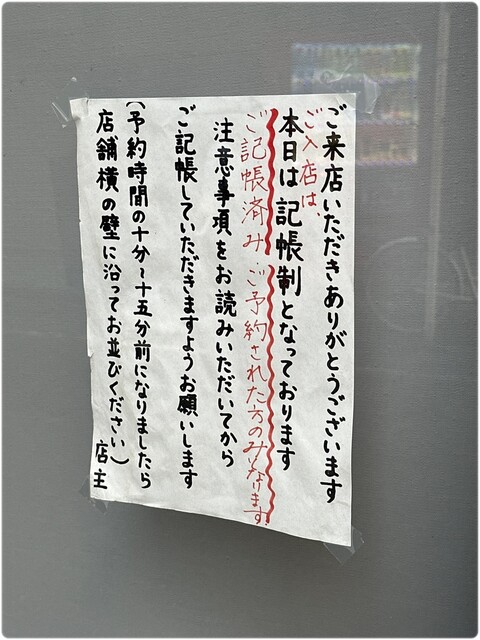 ご来店いただきありがとうございます
ご入店は、
本日は記帳制となっております
ご記帳済み・ご予約された方のみとなります。
注意事項をお読みいただいてから
ご記帳していただきますようお願いします
(予約時間の十分〜十五分前になりましたら
店舗横の壁に沿ってお並びください)
店主